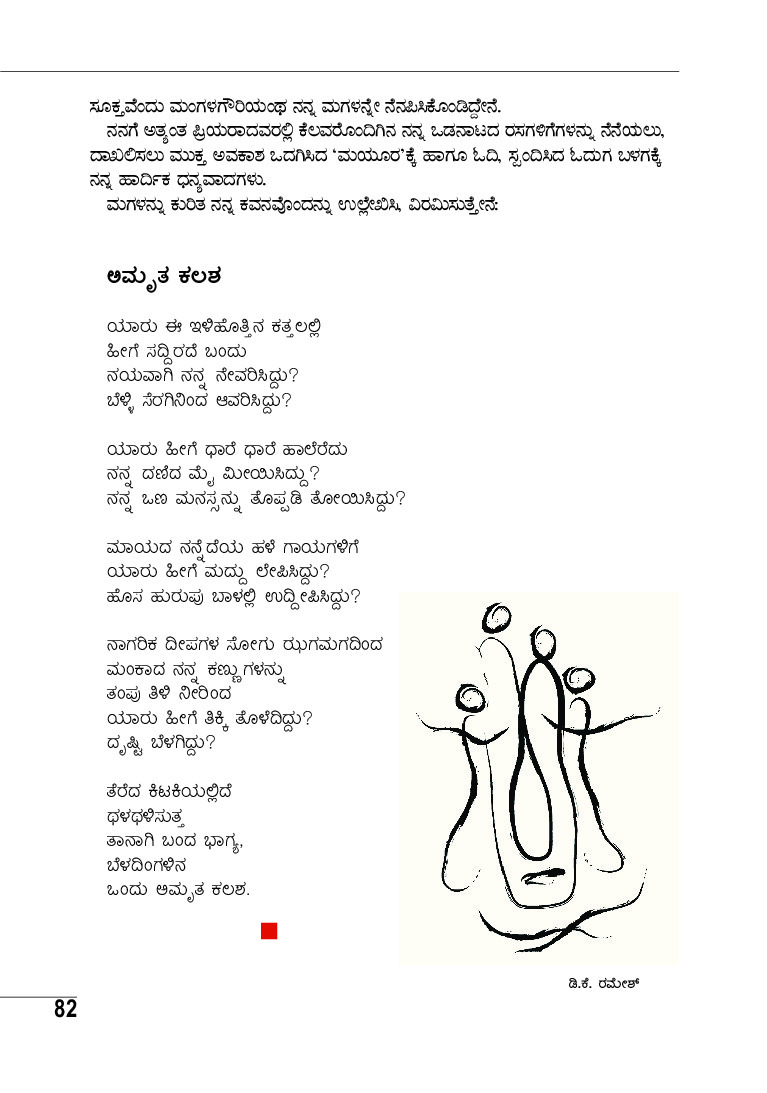 ಸೂಕ್ತವೆಂದು ಮಂಗಳಗೌರಿಯಂಥ ನನ್ನ ಮಗಳನ್ನೇ ನೆನಪಿಸಿಕೊಂಡಿದ್ದೇನೆ.
ನನಗೆ ಅತ್ಯಂತ ಪ್ರಿಯರಾದವರಲ್ಲಿ ಕೆಲವರೊಂದಿಗಿನ ನನ್ನ ಒಡನಾಟದ ರಸಗಳಿಗೆಗಳನ್ನು ನೆನೆಯಲು,
ದಾಖಲಿಸಲು ಮುಕ್ತ ಅವಕಾಶ ಒದಗಿಸಿದ ‘ಮಯೂರ’ಕ್ಕೆ ಹಾಗೂ ಓದಿ, ಸ್ಪಂದಿಸಿದ ಓದುಗ ಬಳಗಕ್ಕೆ
ನನ್ನ ಹಾರ್ದಿಕ ಧನ್ಯವಾದಗಳು.
ಮಗಳನ್ನು ಕುರಿತ ನನ್ನ ಕವನವೊಂದನ್ನು ಉಲ್ಲೇಖಿಸಿ, ವಿರಮಿಸುತ್ತೇನೆ:
ಅಮೃತ ಕಲಶ
ಯಾರು ಈ ಇಳಿಹೊತ್ತಿನ ಕತ್ತಲಲ್ಲಿ
ಹೀಗೆ ಸದ್ದಿರದೆ ಬಂದು
ನಯವಾಗಿ ನನ್ನ ನೇವರಿಸಿದ್ದು?
ಬೆಳ್ಳಿ ಸೆರಗಿನಿಂದ ಆವರಿಸಿದ್ದು?
ಯಾರು ಹೀಗೆ ಧಾರೆ ಧಾರೆ ಹಾಲೆರೆದು
ನನ್ನ ದಣಿದ ಮೈ ಮೀಯಿಸಿದ್ದು?
ನನ್ನ ಒಣ ಮನಸ್ಸನ್ನು ತೊಪ್ಪಡಿ ತೋಯಿಸಿದ್ದು?
ಮಾಯದ ನನ್ನೆದೆಯ ಹಳೆ ಗಾಯಗಳಿಗೆ
ಯಾರು ಹೀಗೆ ಮದ್ದು ಲೇಪಿಸಿದ್ದು?
ಹೊಸ ಹುರುಪು ಬಾಳಲ್ಲಿ ಉದ್ದೀಪಿಸಿದ್ದು?
ನಾಗರಿಕ ದೀಪಗಳ ಸೋಗು ಝಗಮಗದಿಂದ
ಮಂಕಾದ ನನ್ನ ಕಣ್ಣುಗಳನ್ನು
ತಂಪು ತಿಳಿ ನೀರಿಂದ
ಯಾರು ಹೀಗೆ ತಿಕ್ಕಿ ತೊಳೆದಿದ್ದು?
ದೃಷ್ಟಿ ಬೆಳಗಿದ್ದು?
ತೆರೆದ ಕಿಟಕಿಯಲ್ಲಿದೆ
ಥಳಥಳಿಸುತ್ತ
ತಾನಾಗಿ ಬಂದ ಭಾಗ್ಯ,
ಬೆಳದಿಂಗಳಿನ
ಒಂದು ಅಮೃತ ಕಲಶ.
ಡಿ.ಕೆ. ರಮೇಶ್
82